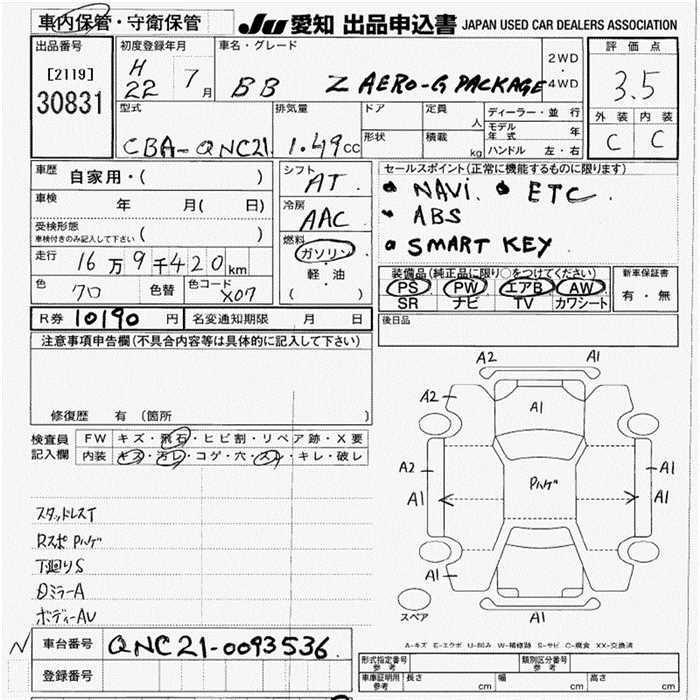 車内保管・守衛保管
JU 愛知 出品申込書 JAPAN USED CAR DEALERS ASSOCIATION
出品番号
[2119]
30831
初度登録年月
H 22 7 月
車名・グレード
BB Z AERO-G PACKAGE
2WD
・
4WD
評価点
3.5
外装 内装
C C
型式
CBA-QNC21
排気量
1.49 CC
ドア
形状
定員
人
積載
kg
ディーラー・並行
モデル年式 年
ハンドル 左・右
車歴
自家用・( )
車検 年 月( 日)
受検形態
車検付きのみ記入して下さい ( )
走行 16万9千420km
色 クロ 色替 色コード X07
シフト
AT
冷房
AAC
燃料
ガソリン
軽・油
( )
セールスポイント(正常に機能するものに限ります)
• NAVi. • ETC
• ABS
• SMART KEY
装備品(純正品に限り○をつけてください)
PS PW エアB AW
SR ナビ TV カワシート
新車保証書
有・無
R券 10190 円 名変通知期限 月 日
後日品
注意事項申告欄(不具合内容等は具体的に記入して下さい)
修復歴 有 (箇所 )
検査員記入欄
FW キズ・飛石・ヒビ割・リペア跡・X要
内装 キズ・汚レ・コゲ・穴・スレ・キレ・破レ
スタッドレスT
Rスポ Pハゲ
下廻りS
Dミラー A
ボディー AU
A2 A1
A2 A1
A2 Pハゲ A1
A1 A1
A1
A1
スペア
A-キズ E-エクボ U-凹み W-補修跡 S-サビ C-腐食 XX-交換済
車台番号 QNC21-0093536
登録番号
形式指定番号 参考
類別区分番号 参考
車庫証明用 参考 長さ cm 幅 cm 高さ cm